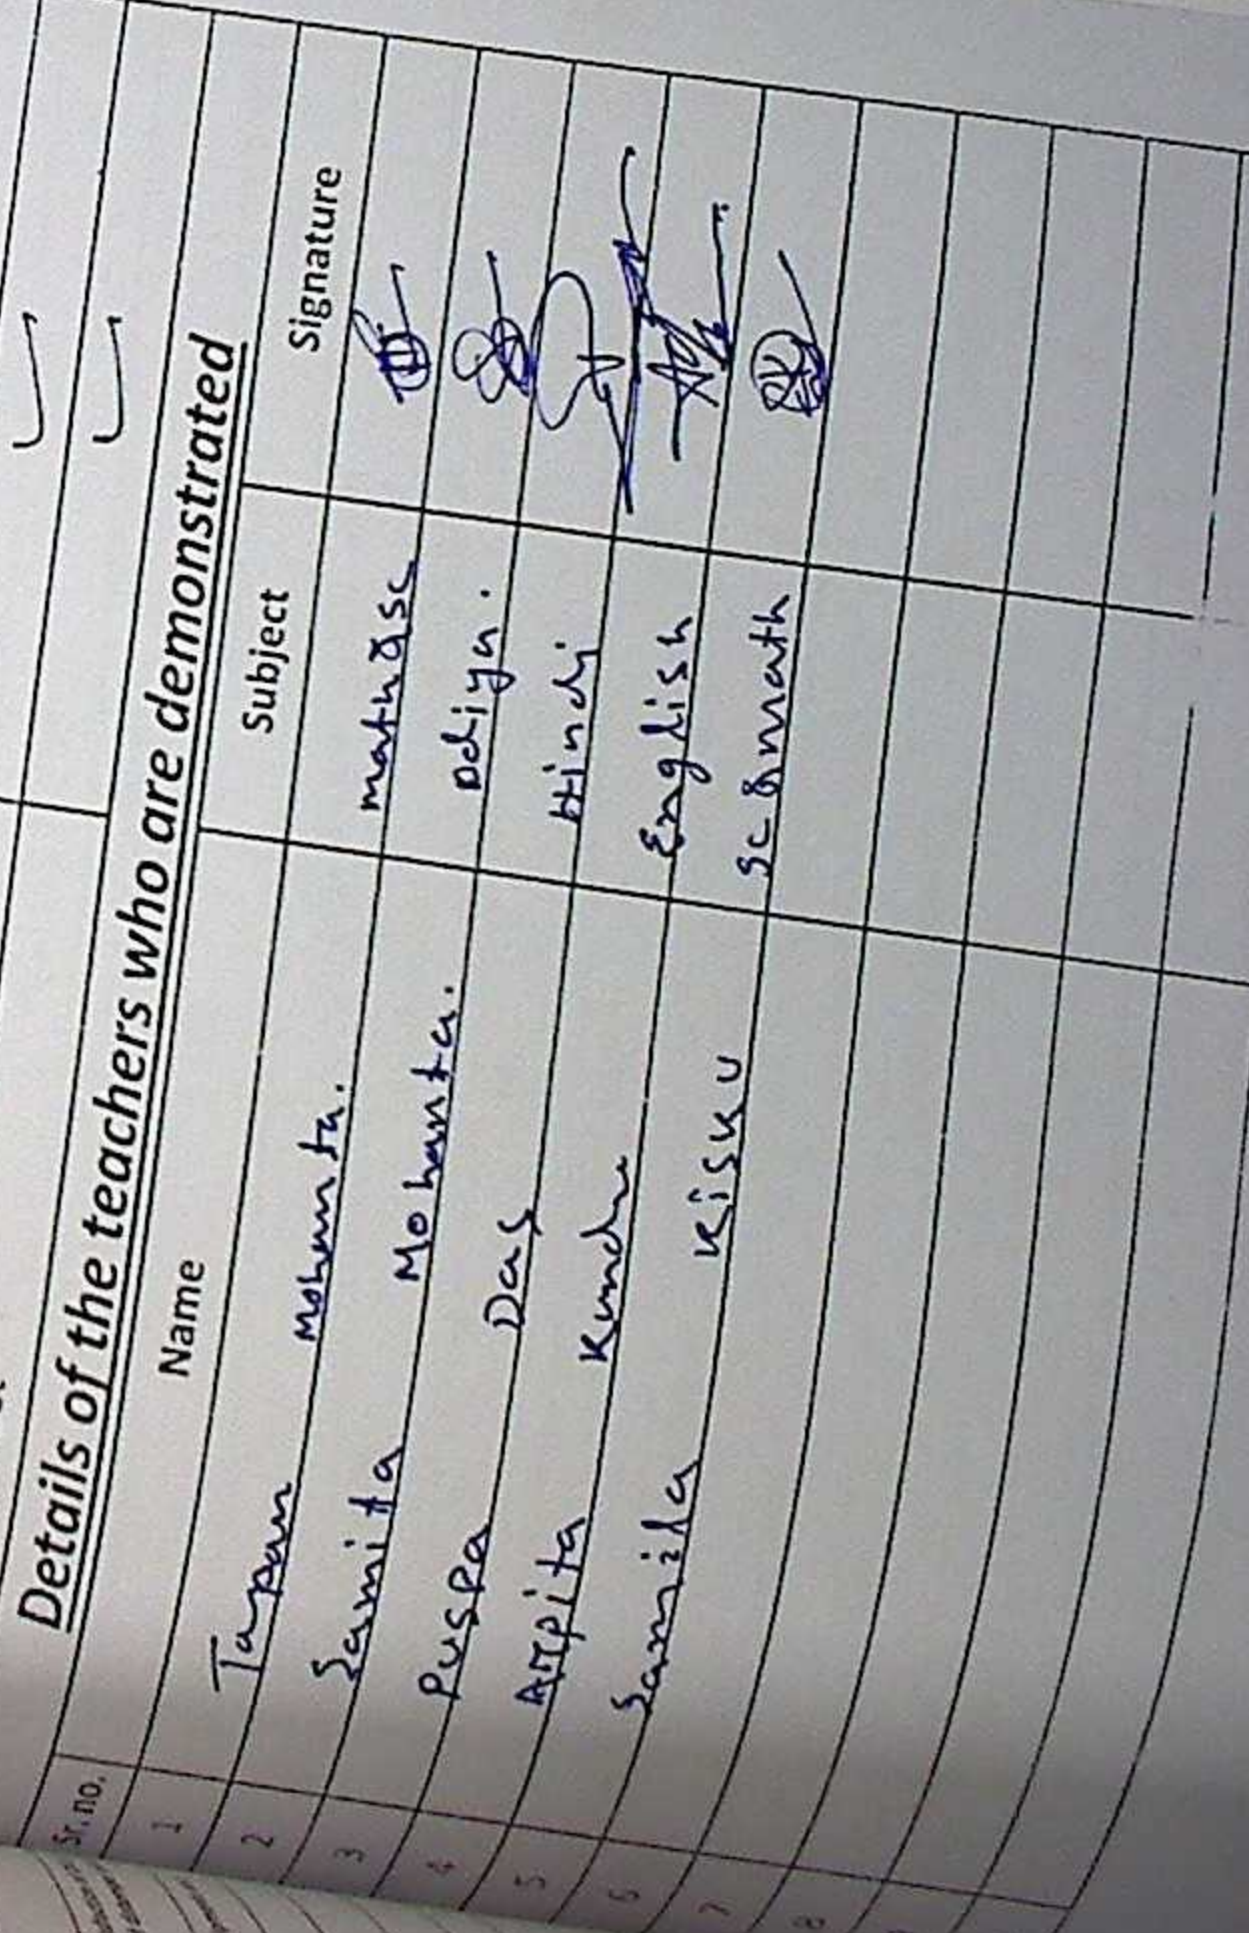 Details of the teachers who are demonstrated
Sr. no. Name Subject Signature
1 Tapan Mohanta. Math & sc
2 Samita Mohanta. Odiya.
3 Puspa Das Hindi
4 Arpita Kundu English
5 Samila Kisku Sc & math
6
7
8